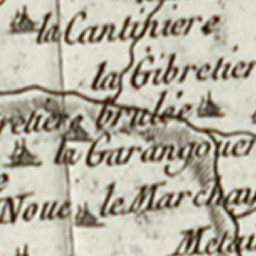 la Cantiniere
la Gibretier
brulée
retiere
la Garangouer
Noue
le Marchau
Metau